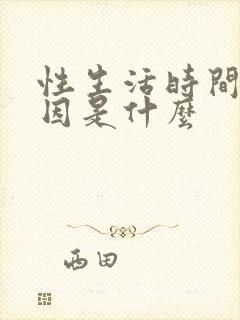 性生活時間
因是什麼
西田